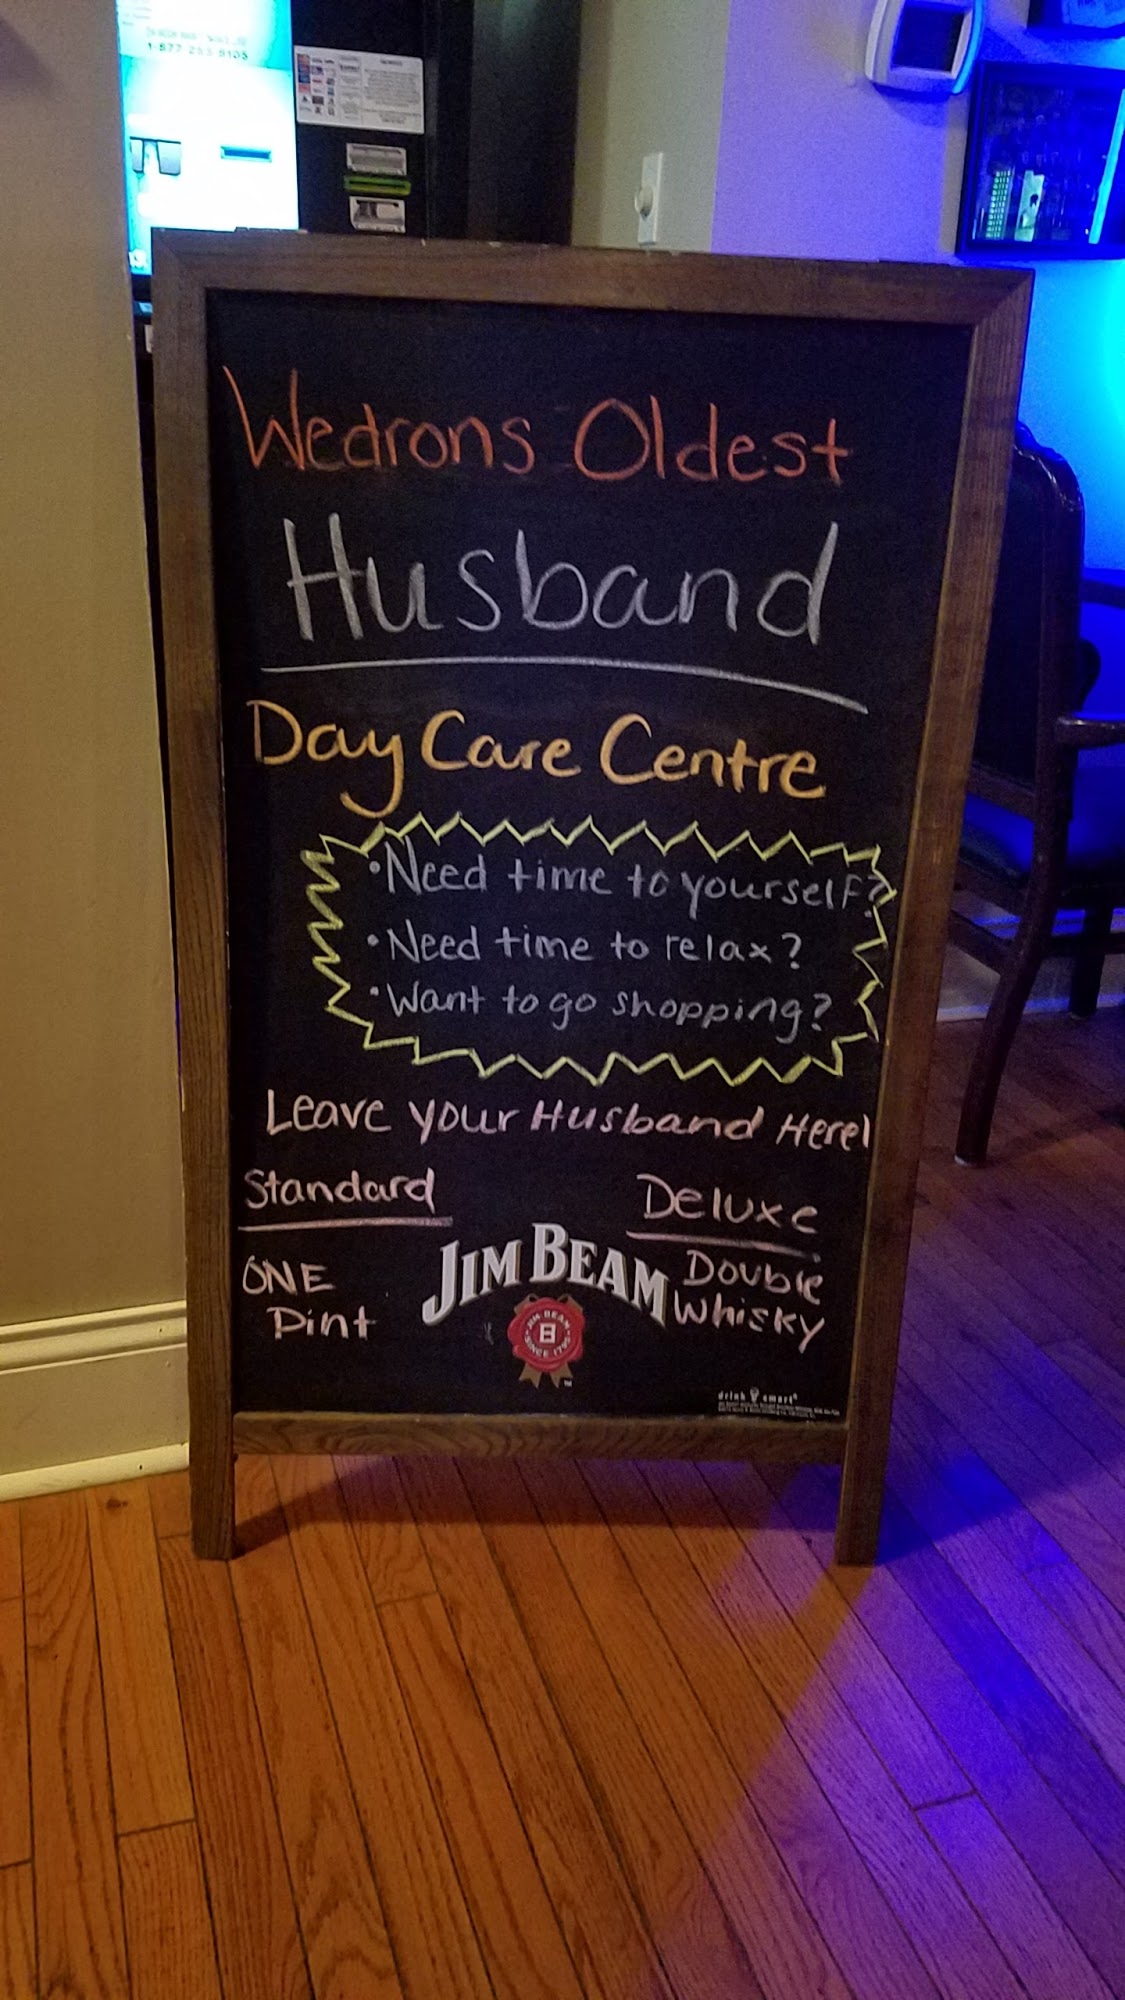 1-877-253-6105
Wedrons Oldest
Husband
Day Care Centre
• Need time to yourself?
• Need time to relax?
• Want to go shopping?
Leave your Husband Here!
Standard
Deluxe
ONE
Pint
JIM BEAM
Double
Whisky
JIM BEAM
B
SINCE 1795
TM
drink smart®